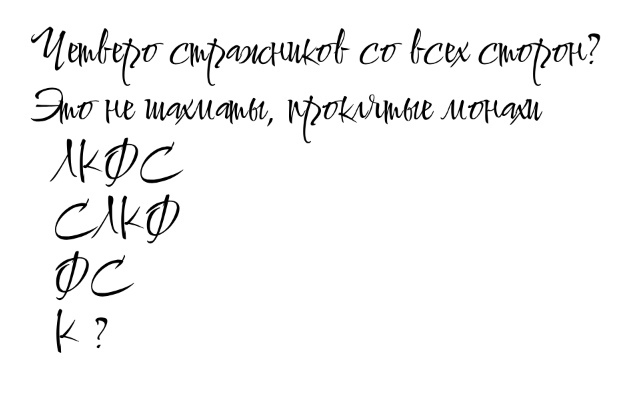 Четверо стражников со всех сторон?
Это не шахматы, проклятые монахи
ЛКФС
СЛКФ
ФС
К ?